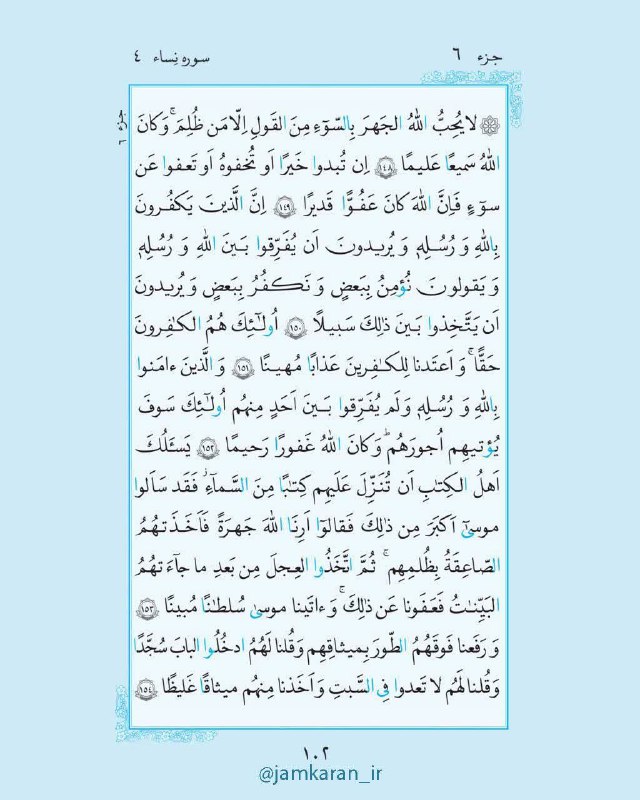 جزء ٦
سوره نِساء ٤
جزء ٦
لا يُحِبُّ اللهُ الجَهرَ بِالسّوٓءِ مِنَ القَولِ اِلّا مَن ظُلِمَ ۚ وَ كانَ
اللهُ سَميعًا عَليمًا ١٤٨ اِن تُبدوا خَيرًا اَو تُخفوهُ اَو تَعفوا عَن
سوٓءٍ فَاِنَّ اللهَ كانَ عَفُوًّا قَديرًا ١٤٩ اِنَّ الَّذينَ يَكفُرونَ
بِاللهِ وَ رُسُلِهٖ وَ يُريدونَ اَن يُفَرِّقوا بَينَ اللهِ وَ رُسُلِهٖ
وَ يَقولونَ نُؤمِنُ بِبَعضٍ وَ نَكفُرُ بِبَعضٍ وَ يُريدونَ
اَن يَتَّخِذوا بَينَ ذٰلِكَ سَبيلًا ١٥٠ اُولٰٓئِكَ هُمُ الكٰفِرونَ
حَقًّا ۚ وَ اَعتَدنا لِلكٰفِرينَ عَذابًا مُهينًا ١٥١ وَ الَّذينَ ءامَنوا
بِاللهِ وَ رُسُلِهٖ وَ لَم يُفَرِّقوا بَينَ اَحَدٍ مِنهُم اُولٰٓئِكَ سَوفَ
يُؤتيهِم اُجورَهُم ۗ وَ كانَ اللهُ غَفورًا رَحيمًا ١٥٢ يَسـَٔلُكَ
اَهلُ الكِتٰبِ اَن تُنَزِّلَ عَلَيهِم كِتٰبًا مِنَ السَّماءِ ۚ فَقَد سَاَلوا
موسىٰٓ اَكبَرَ مِن ذٰلِكَ فَقالوٓا اَرِنَا اللهَ جَهرَةً فَاَخَذَتهُمُ
الصّاعِقَةُ بِظُلمِهِم ۚ ثُمَّ اتَّخَذُوا العِجلَ مِن بَعدِ ما جآءَتهُمُ
البَيِّنٰتُ فَعَفَونا عَن ذٰلِكَ ۚ وَ ءاتَينا موسىٰ سُلطٰنًا مُبينًا ١٥٣
وَ رَفَعنا فَوقَهُمُ الطّورَ بِميثاقِهِم وَ قُلنا لَهُمُ ادخُلُوا البابَ سُجَّدًا
وَ قُلنا لَهُم لا تَعدوا فِي السَّبتِ وَ اَخَذنا مِنهُم ميثاقًا غَليظًا ١٥٤
١٠٢
@jamkaran_ir